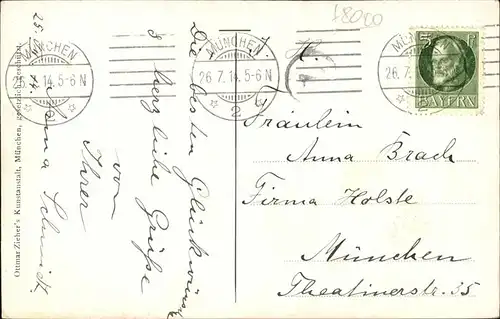 18000
MÜNCHEN
26.7.14.5-6N
2
MÜNCHEN
26.7.14.5-6N
2
MÜNCHEN
26.7
5 Pf
BAYERN
Ottmar Zieher's Kunstanstalt, München, gesetzlich geschützt
Die besten Glückwünsche
& herzliche Grüße
von
Ihrer
Schmidt
H.
Fräulein
Anna Brach
Firma Holste
München
Theatinerstr. 35